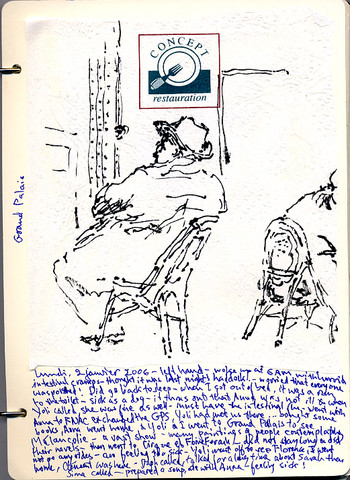 CONCEPT
restauration
Grand Palais
Lundi, 2 janvier 2006 - left hand - woke up at 6AM with horrid
intestinal cramps - thought it was last night's haddock! - worried that everyone
was poisoned! Did go back to sleep - when I got out of bed, it was a rush
to the toilet - sick as a dog - it turns out that Anna was not ill & when
Yoli called she was fine as well - must have an intestinal bug went with
Anna to FNAC exchanged the GPS Yoli had met us there - bought some
books, Ann went home & Yoli & I went to Grand Palais to see
Melancolie - a vast show - many paintings people contemplating
their navels - then went to Cirque at Forain - did not stay long & did
not do any - am feeling so sick - Yoli went off to see Florence, I went
home, Clément was here - Steph called, talked for a long time about Sarah then
Sima called - prepared a soup, ate with Anna - feeling sick!